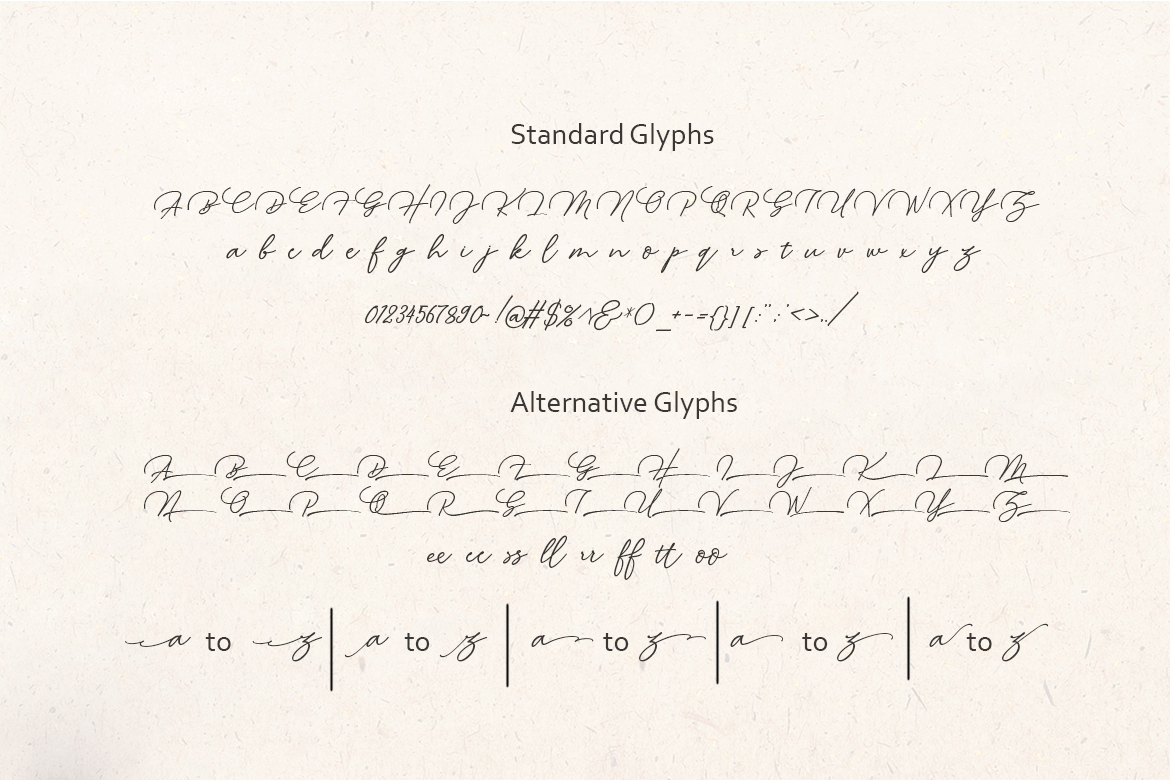 Standard Glyphs
A B C D E F G H I J K L M N O P Q R S T U V W X Y Z
a b c d e f g h i j k l m n o p q r s t u v w x y z
01234567890~!@#$%^&*() _+-={}][:";'<>,./
Alternative Glyphs
A B C D E F G H I J K L M
N O P Q R S T U V W X Y Z
ee cc ss ll rr ff tt oo
a to z | a to z | a to z | a to z | a to z